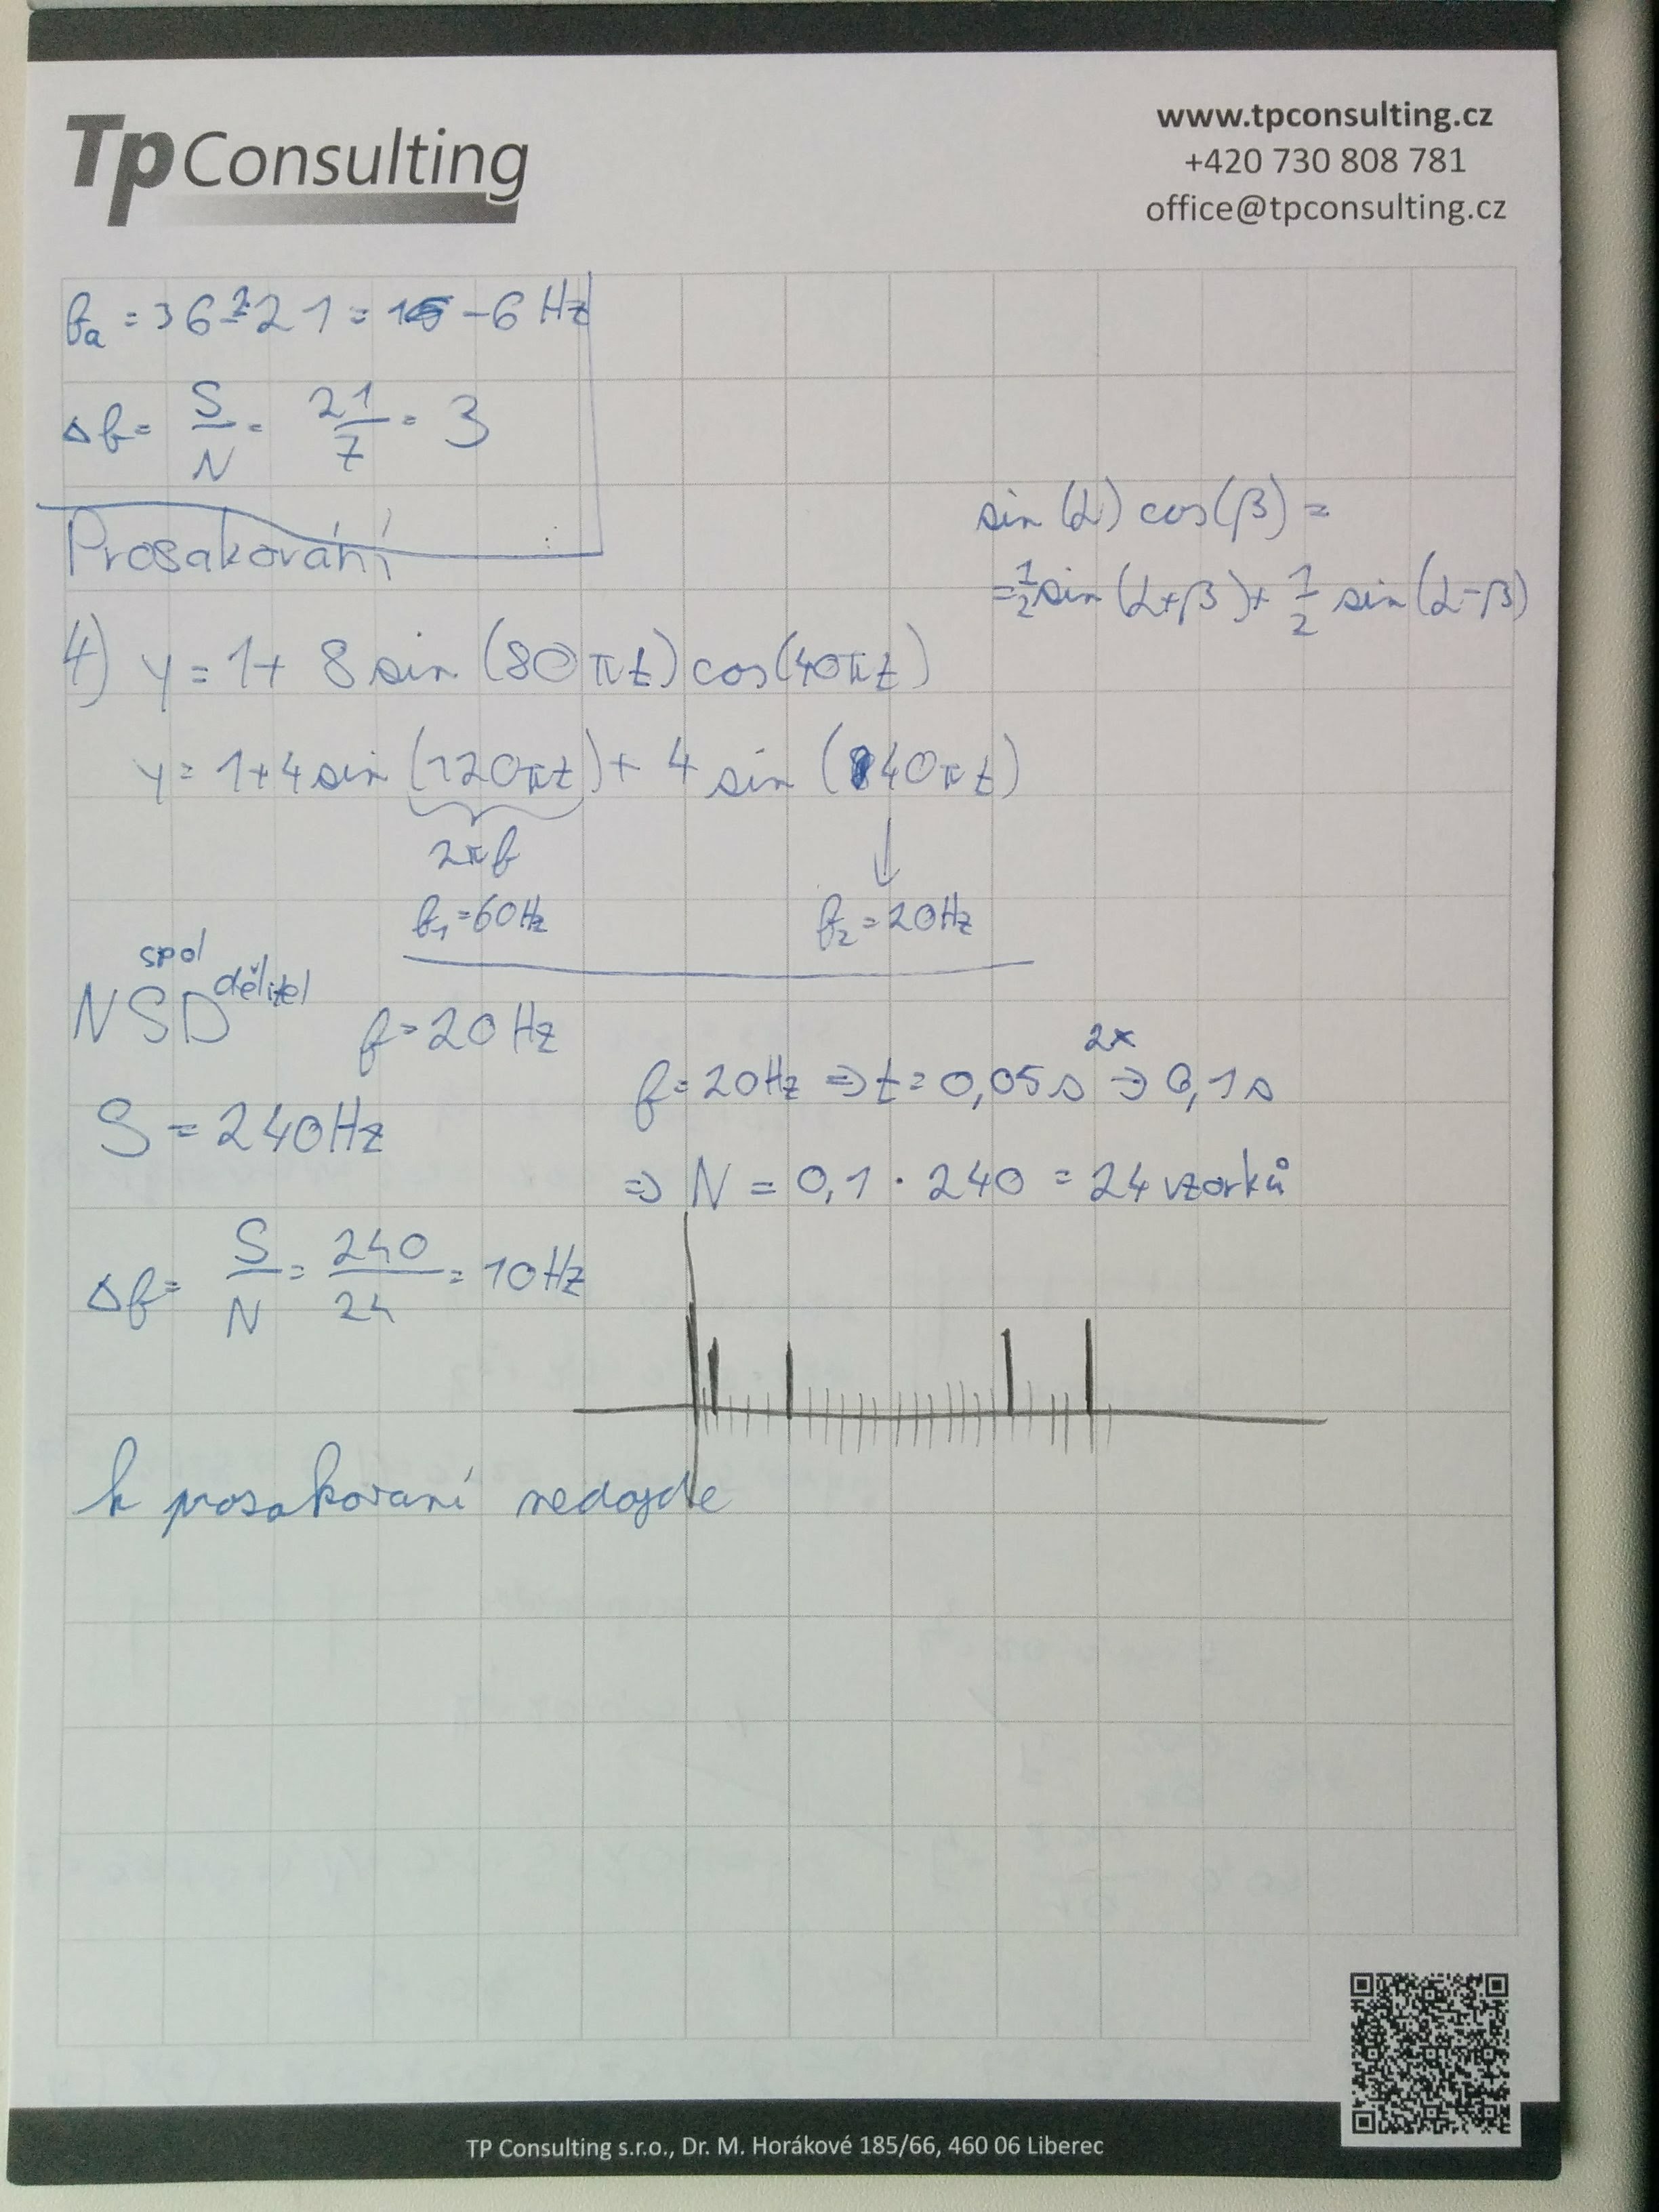 Tp Consulting
www.tpconsulting.cz
+420 730 808 781
office@tpconsulting.cz
fₐ = 36 - 2·21 = -6 Hz
Δf = S/N = 21/7 = 3
Prosakování
sin(α) cos(β) =
= 1/2 sin(α+β) + 1/2 sin(α-β)
4) y = 1 + 8 sin(80πt) cos(40πt)
y = 1 + 4 sin(120πt) + 4 sin(40πt)
2πf
f₁ = 60Hz
f₂ = 20Hz
spol
NSD dělitel
f = 20 Hz
2x
f = 20Hz ⇒ t = 0,05 s ⇒ 0,1 s
S = 240Hz
⇒ N = 0,1 · 240 = 24 vzorků
Δf = S/N = 240/24 = 10 Hz
k prosakování nedojde
TP Consulting s.r.o., Dr. M. Horákové 185/66, 460 06 Liberec